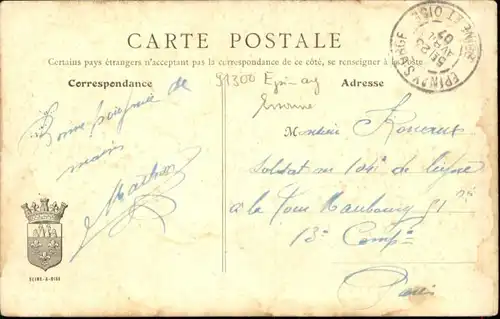 CARTE POSTALE
Certains pays étrangers n'acceptant pas la correspondance de ce côté, se renseigner à la poste
Correspondance
Adresse
91300 Epinay
Essonne
Bonne poignée de
mains
EPINAY S ORGE
SEINE ET OISE
5E 23
AVRIL
07
Monsieur
Soldat au 104e de ligne
à la Tour Maubourg
13e Comp ie
Paris